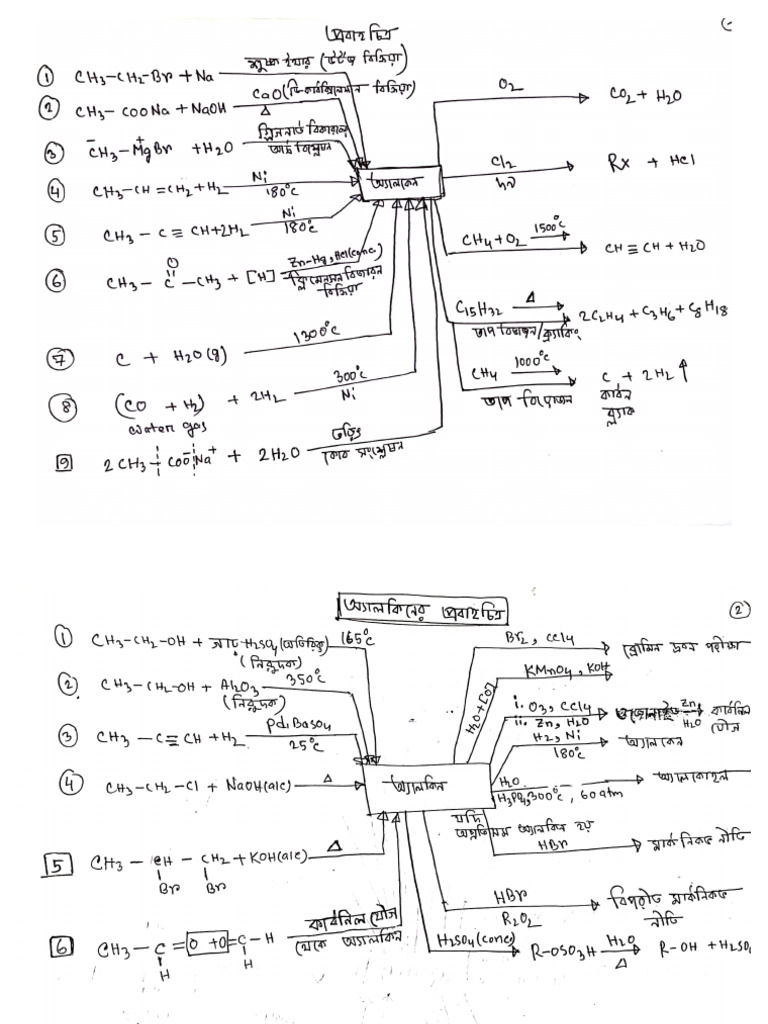 প্রবাহ চিত্র
① CH3-CH2-Br + Na শুষ্ক ইথার (উর্টজ বিক্রিয়া)
② CH3-COONa + NaOH CaO (ডিকার্বক্সিলেশন বিক্রিয়া) Δ
③ CH3-MgBr + H2O গ্রিগনার্ড বিকারক আর্দ্র বিশ্লেষণ
④ CH3-CH=CH2 + H2 Ni 180°C
⑤ CH3-C≡CH + 2H2 Ni 180°C
⑥ CH3-C-CH3 + [H] Zn-Hg, HCl(conc.)
O
ক্লিমেনসন বিজারন বিক্রিয়া
⑦ C + H2O(g) 1300°C
⑧ (CO + H2) + 2H2 300°C Ni
water gas
9 2CH3-COO⁻Na⁺ + 2H2O তড়িৎ
কোব সংশ্লেষন
অ্যালকেন
O2 CO2 + H2O
Cl2 Rx + HCl
hν
CH4 + O2 1500°C CH≡CH + H2O
C15H32 Δ 2C2H4 + C3H6 + C8H18
তাপ বিভাজন/ক্র্যাকিং
CH4 1000°C C + 2H2↑
তাপ বিয়োজন কার্বন
ব্ল্যাক
অ্যালকিনের প্রবাহচিত্র
②
① CH3-CH2-OH + গাঢ় H2SO4 (অতিরিক্ত) 165°C
(নিরুদক)
② CH3-CH2-OH + Al2O3 350°C
(নিরুদক)
③ CH3-C≡CH + H2 Pd.BaSO4 25°C
④ CH3-CH2-Cl + NaOH(alc) Δ
5 CH3-CH-CH2 + KOH(alc) Δ
Br Br
6 CH3-C=O + O=C-H কার্বনিল যৌজ
H H থেকে অ্যালকিন
অ্যালকিন
Br2, CCl4 ব্রোমিন দ্রবন পরীক্ষা
KMnO4, KOH
H2O + CO2
i. O3, CCl4
ii. Zn, H2O Zn H2O কার্বনিল যৌগ
H2, Ni অ্যালকেন
180°C
H2O অ্যালকোহল
H3PO4, 300°C, 60atm
যদি
অপ্রতিসম অ্যালকিন হয়
HBr মার্কনিকভ নীতি
HBr বিপরীত মার্কনিকভ
R2O2 নীতি
H2SO4(conc) R-OSO3H H2O Δ R-OH + H2SO